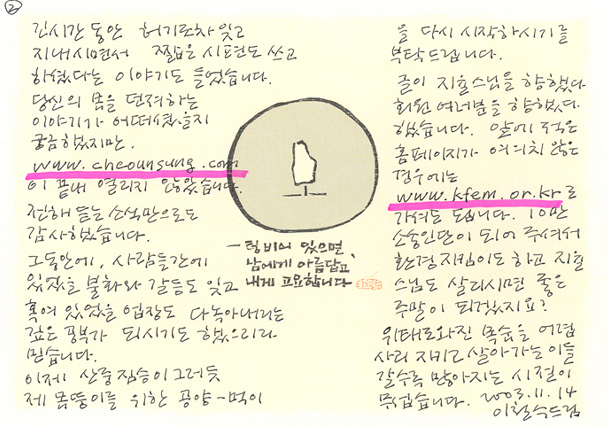 ②
긴시간 동안 허기조차 잊고
지내시면서 짧은 시편도 쓰고
하셨다는 이야기도 들었습니다.
당신의 몸을 던져하는
이야기가 어떠셨을지
궁금했지만.
www.cheounsung.com
이 끝내 열리지 않았습니다.
전해 듣는 소식만으로도
감사했습니다.
그동안에, 사람들간에
있었을 불화와 갈등도 잊고
혹여 있었을 입장도 다녹아내리는
깊은 공부가 되시기도 했으리라
믿습니다.
이제 산중짐승이 그러듯
제 몸뚱이를 위한 공양-먹이
- 텅비어 있으면,
남에게 아름답고,
내게 고요합니다
을 다시 시작하시기를
부탁드립니다.
글이 지율스님을 향했다
회원 여러분을 향했다
했습니다. 앞에 적은
홈페이지가 여의치 않은
경우에는
www.kfem.or.kr로
가셔도 됩니다. 10만
소송인단이 되어 주셔서
환경지킴이도 하고 지율
스님도 살리시면 좋은
주말이 되겠지요?
위태로와진 목숨을 어렵
사리 지키고 살아가는 이들
갈수록 많아지는 시절이
무섭습니다. 2003.11.14
이철수드림